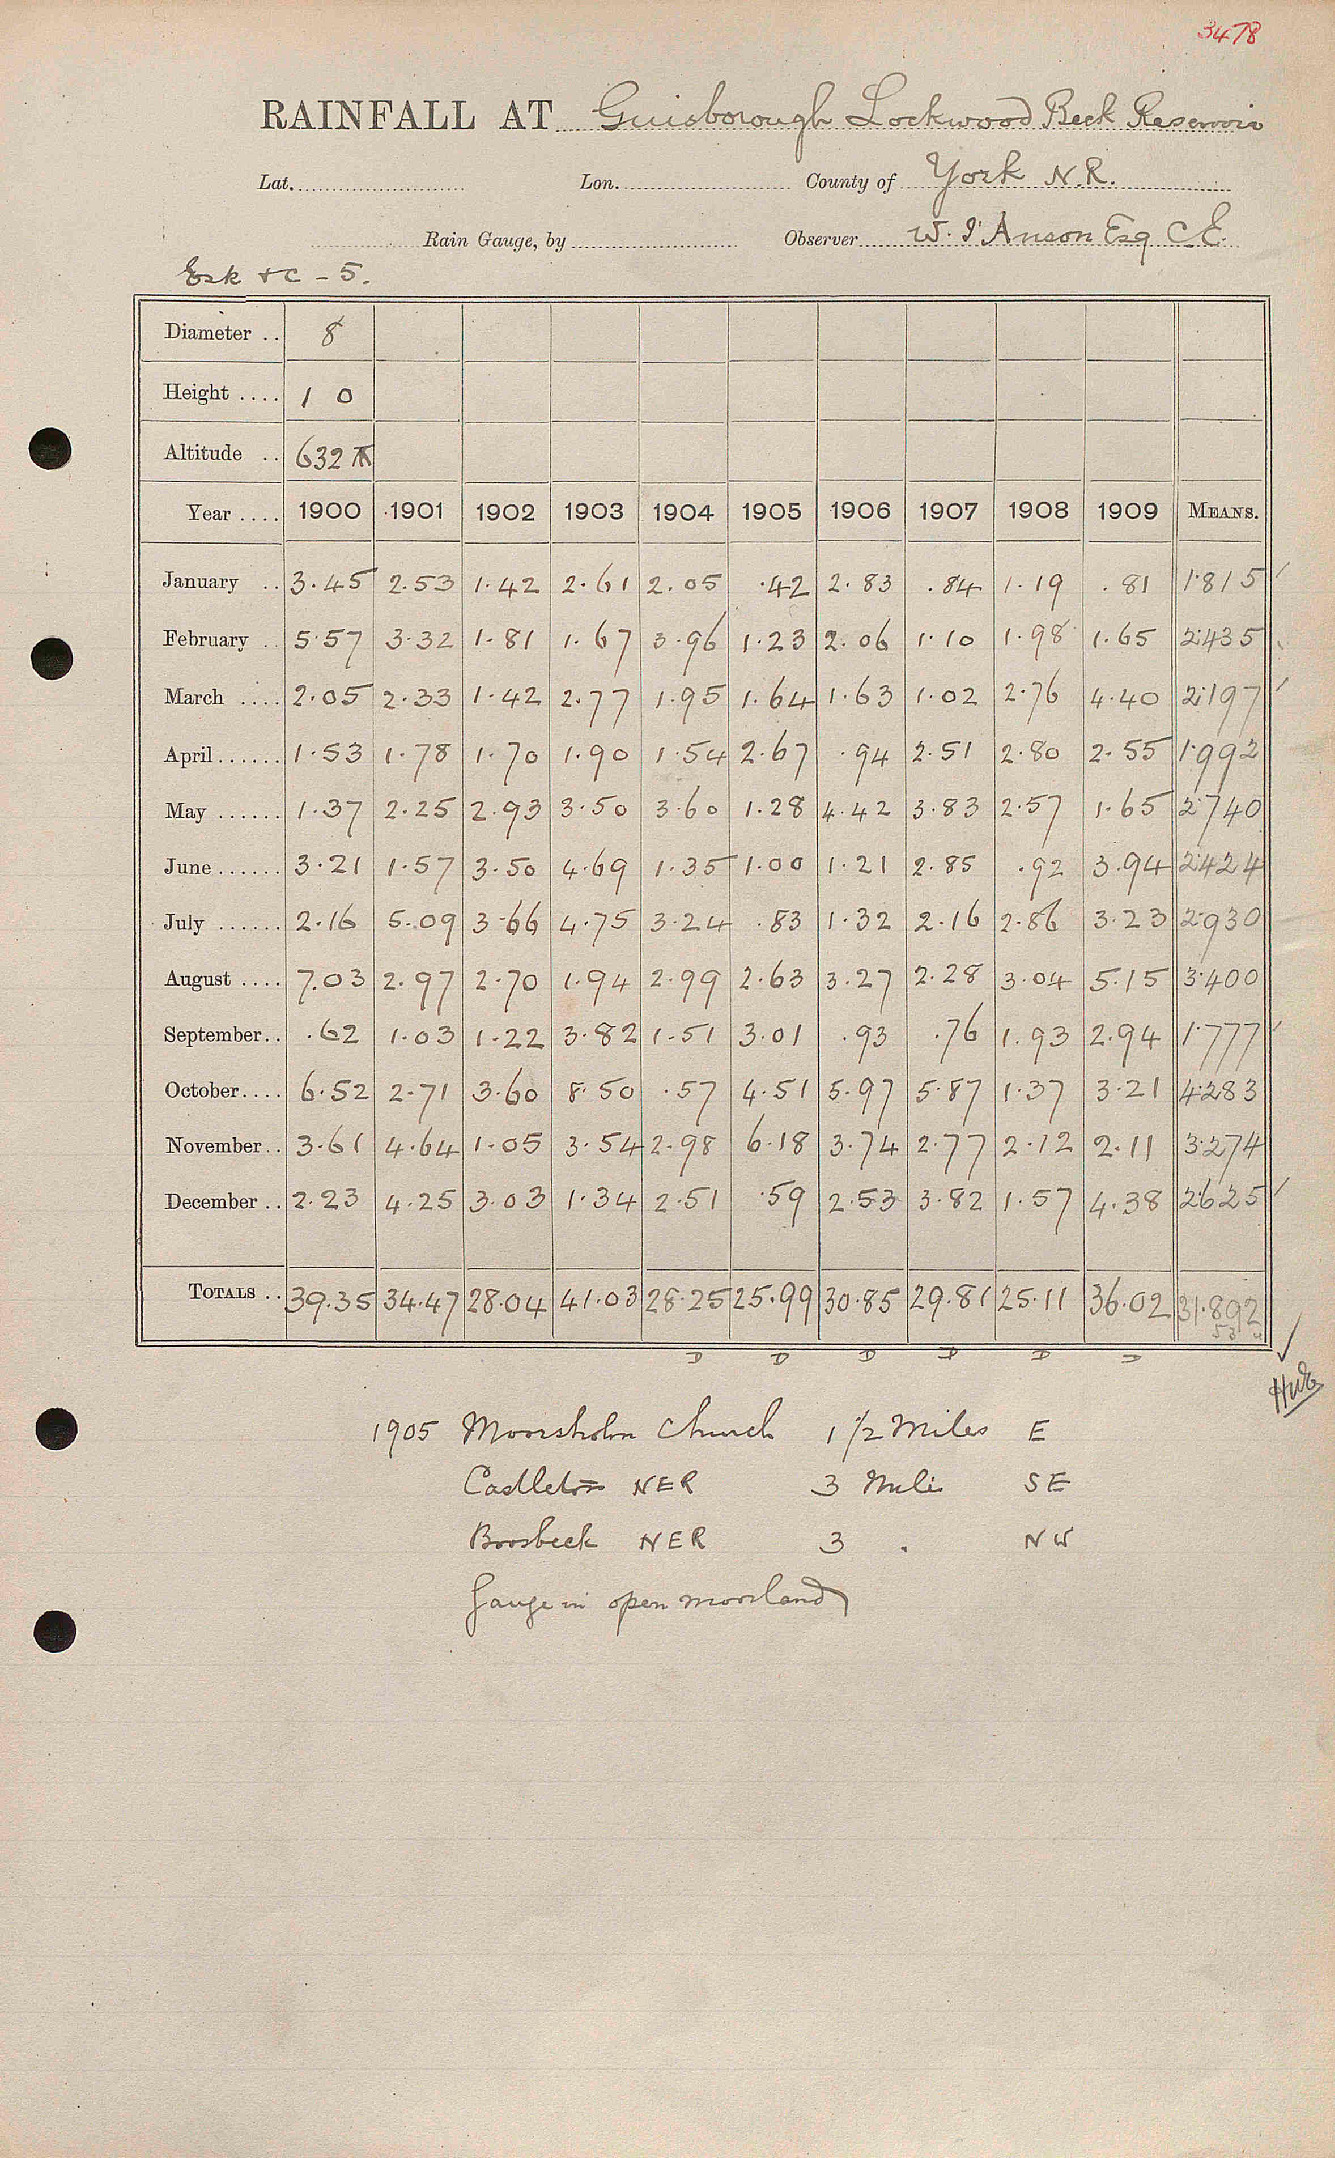 3478
RAINFALL AT Guisborough Lockwood Beck Reservoir
Lat. Lon. County of York N.R.
Rain Gauge, by Observer W. I'Anson Esq C.E.
Esk &c - 5.
Diameter .. 8
Height .... 1 0
Altitude .. 632 ft
Year .... 1900 1901 1902 1903 1904 1905 1906 1907 1908 1909 MEANS.
January .. 3.45 2.53 1.42 2.61 2.05 .42 2.83 .84 1.19 .81 1.815
February .. 5.57 3.32 1.81 1.67 3.96 1.23 2.06 1.10 1.98 1.65 2.435
March .... 2.05 2.33 1.42 2.77 1.95 1.64 1.63 1.02 2.76 4.40 2.197
April...... 1.53 1.78 1.70 1.90 1.54 2.67 .94 2.51 2.80 2.55 1.992
May ...... 1.37 2.25 2.93 3.50 3.60 1.28 4.42 3.83 2.57 1.65 2.740
June...... 3.21 1.57 3.50 4.69 1.35 1.00 1.21 2.85 .92 3.94 2.424
July ...... 2.16 5.09 3.66 4.75 3.24 .83 1.32 2.16 2.86 3.23 2.930
August .... 7.03 2.97 2.70 1.94 2.99 2.63 3.27 2.28 3.04 5.15 3.400
September.. .62 1.03 1.22 3.82 1.51 3.01 .93 .76 1.93 2.94 1.777
October.... 6.52 2.71 3.60 8.50 .57 4.51 5.97 5.87 1.37 3.21 4.283
November.. 3.61 4.64 1.05 3.54 2.98 6.18 3.74 2.77 2.12 2.11 3.274
December .. 2.23 4.25 3.03 1.34 2.51 .59 2.53 3.82 1.57 4.38 2.625
TOTALS .. 39.35 34.47 28.04 41.03 28.25 25.99 30.85 29.81 25.11 36.02 31.892
D D D D D D
1905 Moorsholm Church 1 1/2 Miles E
Castleton NER 3 Miles SE
Boosbeck NER 3 . NW
Gauge in open moorland